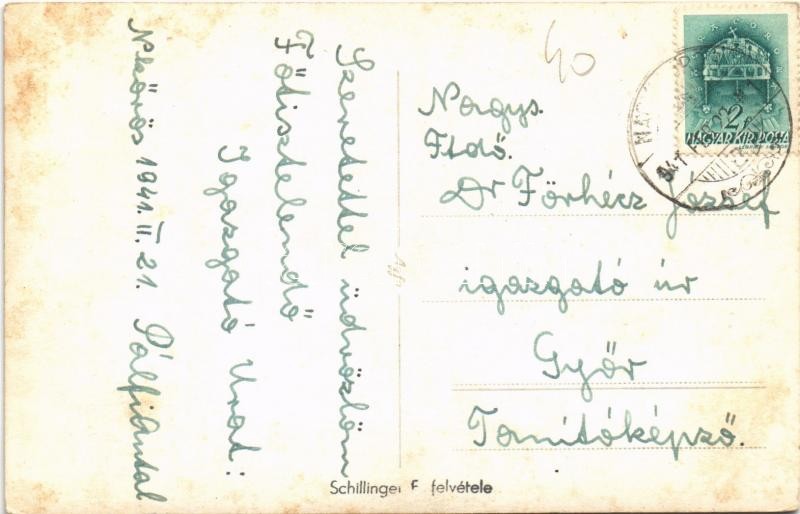 Szeretettel üdvözlöm
Főtisztelendő
Igazgató Urat:
Nkőrös 1941. II. 21. Pálfiantal
40
Nagys.
Ftdő.
Dr Förhécz József
igazgató úr
Győr
Tanítóképző.
Schillinger F felvétele
2f
MAGYAR KIR. POSTA